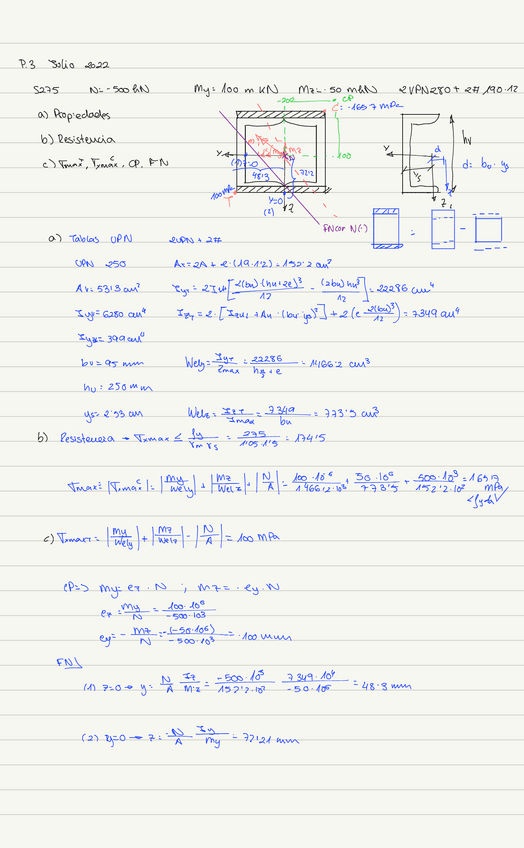 P.3 Julio 2022
S275 N=-500 kN My= 100 m kN Mz=-50 mkN 2UPN280 + 2# 190·12
a) Propiedades
b) Resistencia
-202 CP
-165'7 MPa
100
Mz
(1) z=0
48'3
72'2
100 MPa
y=0
(2)
z
FN con N(-)
y
hv
d
d= bu - ys
ys
a) Tablas UPN 2UPN + 2#
UPN 250 AT= 2A + 2·(19·1'2) = 152'2 cm²
IyT = 2Iyu + [2(bu)·(hu+2e)³/12 - (2bu)·hu³/12] = 22286 cm⁴
IzT = 2·[Izu + Au·(bu-ys)²] + 2(e·2(bu)³/12) = 7349 cm⁴
bu = 95 mm
hu = 250 mm
Wely = IyT/zmax = 22286/ = 1466'2 cm³
ys = 2'53 cm Welz = IzT/ymax = 7349/bu = 773'5 cm³
b) Resistencia → σxmax ≤ fy/γm γs = 275/1'05·1'5 = 174'5
σmax = |σxmax^c| = |My/Wely| + |Mz/Welz| + |N/A| = 100·10⁶/1466'2·10³ + 50·10⁶/773'5 + 500·10³/152'2·10² = 165'7 MPa < fyd ✓
c) σxmaxT = |My/Wely| + |Mz/Welz| - |N/A| = 100 MPa
CP=) My= ez · N ; Mz = - ey·N
ez = My/N = 100·10⁶/-500·10³
ey= - Mz/N = -(-50·10⁶)/-500·10³ = -100 mm
FN|
(1) z=0 → y= N/A Iz/Mz = -500·10³/152'2·10² 7349·10⁴/-50·10⁶ = 48'3 mm
(2) y=0 → z= -N/A Iy/My = 72'21 mm